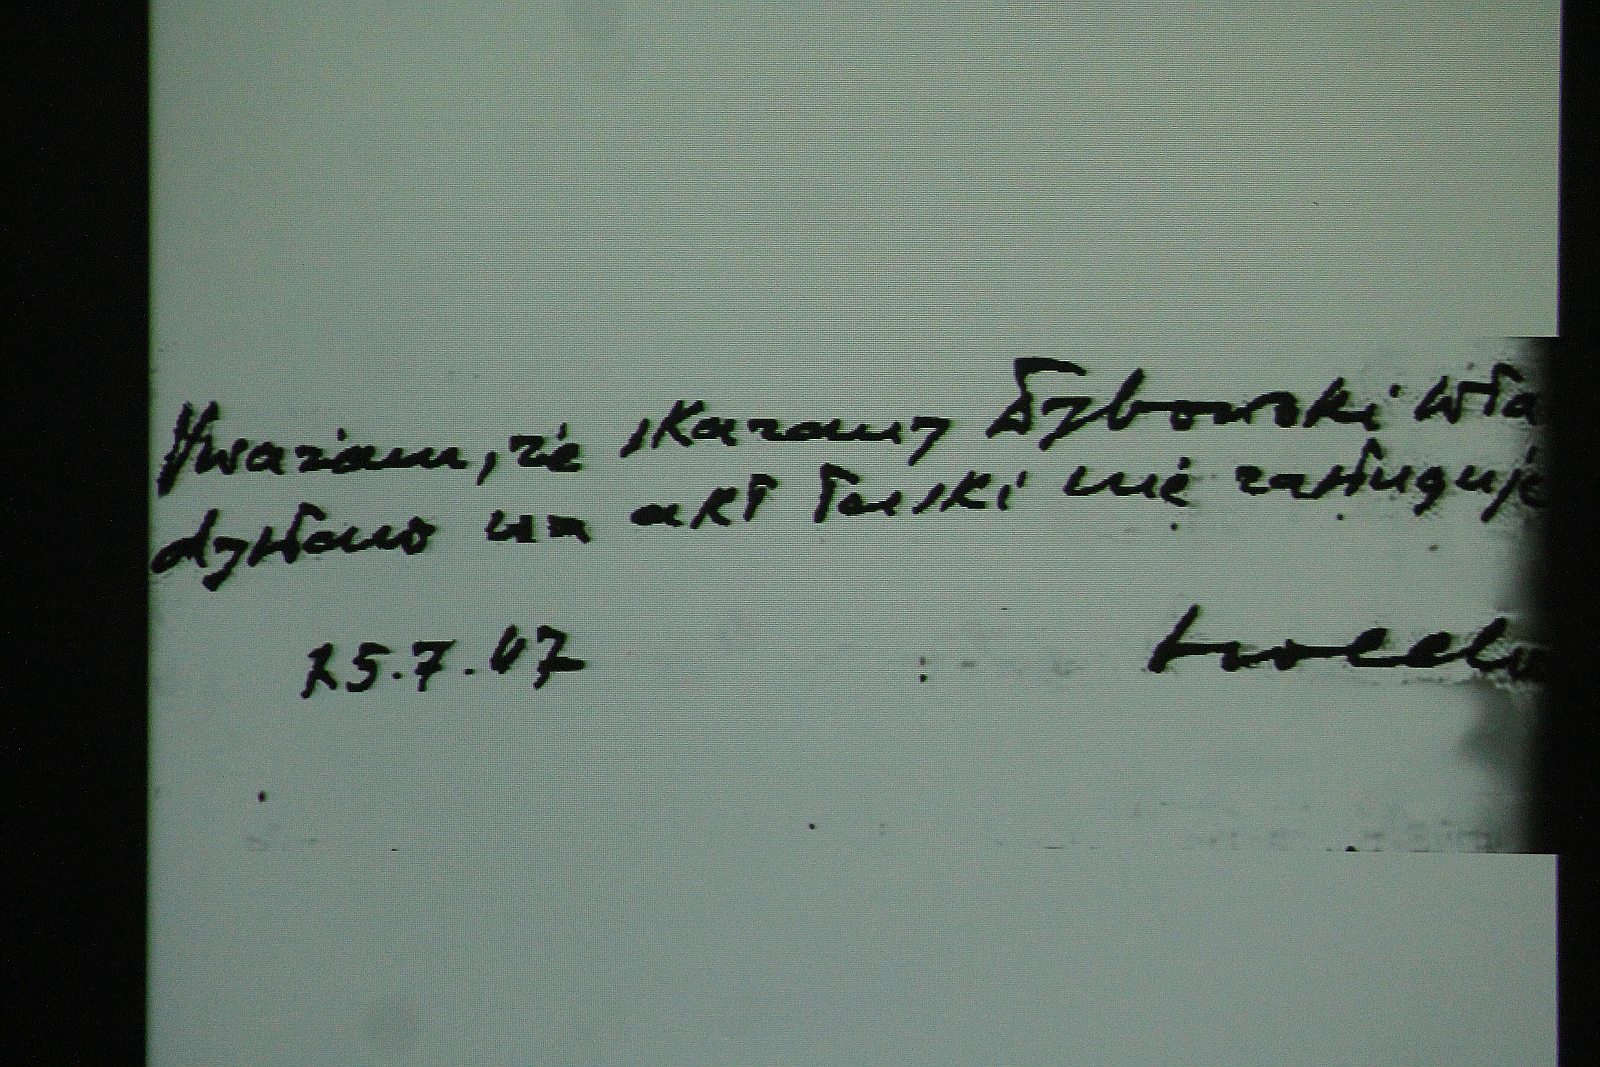 Uważam, że skazany Dybowski Wła
dysław na akt łaski nie zasługuje
25.7.47